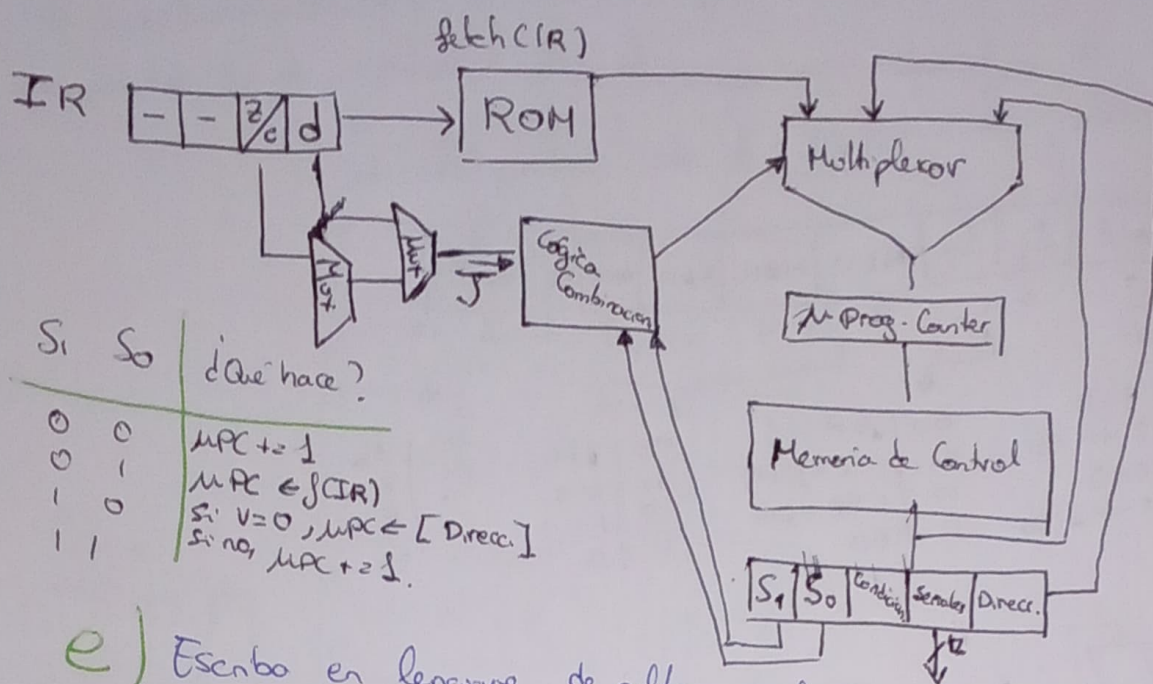 fetch(IR)
IR
- - z/c d
ROM
Multiplexor
Mux
Mux
Lógica
Combinacion
μ Prog. Counter
Memoria de Control
S1 S0 Condición Señales Direcc.
S1 S0 ¿Qué hace?
0 0 μPC += 1
0 1 μPC ← f(IR)
1 0 Si v=0, μPC ← [Direcc.]
1 1 Si no, μPC += 1.
e) Escribo en lenguaje de